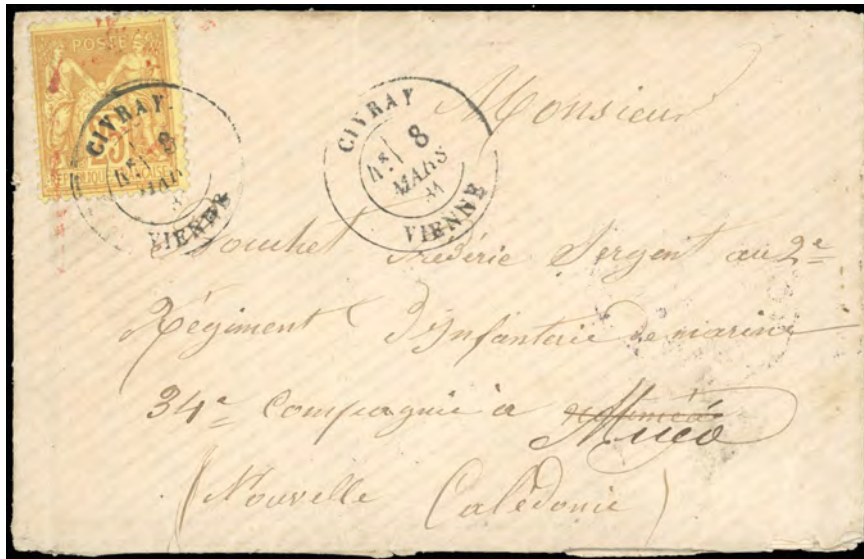 POSTE
25
REPUBLIQUE FRANCAISE
CIVRAY
8
MAR
VIENNE
CIVRAY
8
MARS
81
VIENNE
Monsieur
Frédéric Sergent au 2e
Régiment D'Infanterie de marine
34e Compagnie à Nouméa
Muéo
(Nouvelle Calédonie)